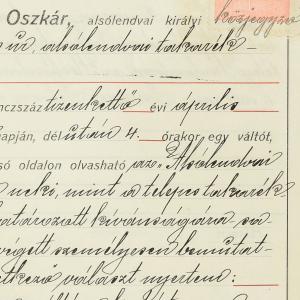 Oszkár, alsólendvai királyi közjegyző
úr, alsólendvai takarék-
nczszáz tizenkettő évi április
apján, délután 4. órakor egy váltót,
só oldalon olvasható az "Alsólendvai
neki, mint a telepes takarék
atározott kívánságára sa
végett személyesen bemutat-
etkező választ nyertem: